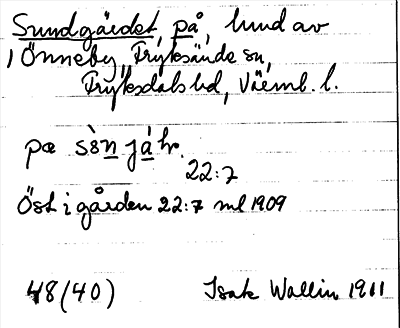 Sundgärdet, på, hund av
1 Önneby, Fryksände sn,
Fryksdals hd, Värml. l.
pœ sònjáhr.
22:7
Öst i gården 22:7 ml 1909
48(40) Isak Wallin 1911